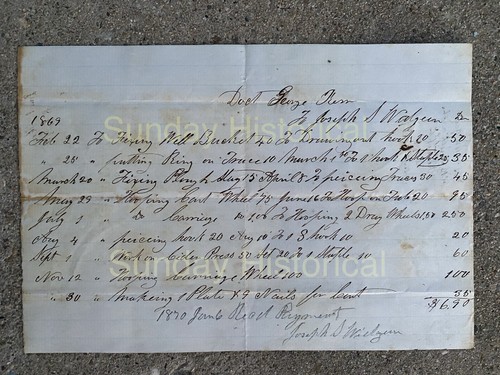 Doct George Kerr
To Joseph S Widgeen Dr
1869
Feb 22 To Fixing Well Bucket 40 To Drawing hook 20 .50
" 25 " putting Ring on Trace 10 March 1st To 1 hook & Staple 25 35
March 20 " Fixing Plough 15 April 8 To piecing Traces 30 45
May 29 " Hooping Cart Wheel 75 June 16 To Hoop on Tub 20 95
July 1 " do Carriage do 1,00 To Hooping 2 Dray Wheels 1.50 250
Aug 4 " piecing hook 20 Aug 10 To 1 S hook 10 20
Sept 1 " Work on Cider Press 50 20 To 1 Staple 10 60
Nov 12 " Hooping Carriage Wheel 100 100
" 30 " Making 1 Plate & 9 Nails for Cart 35
$6.90
1870 Jan 6 Recd Payment
Joseph S Widgeen
Sunday Historical
Sunday Historical